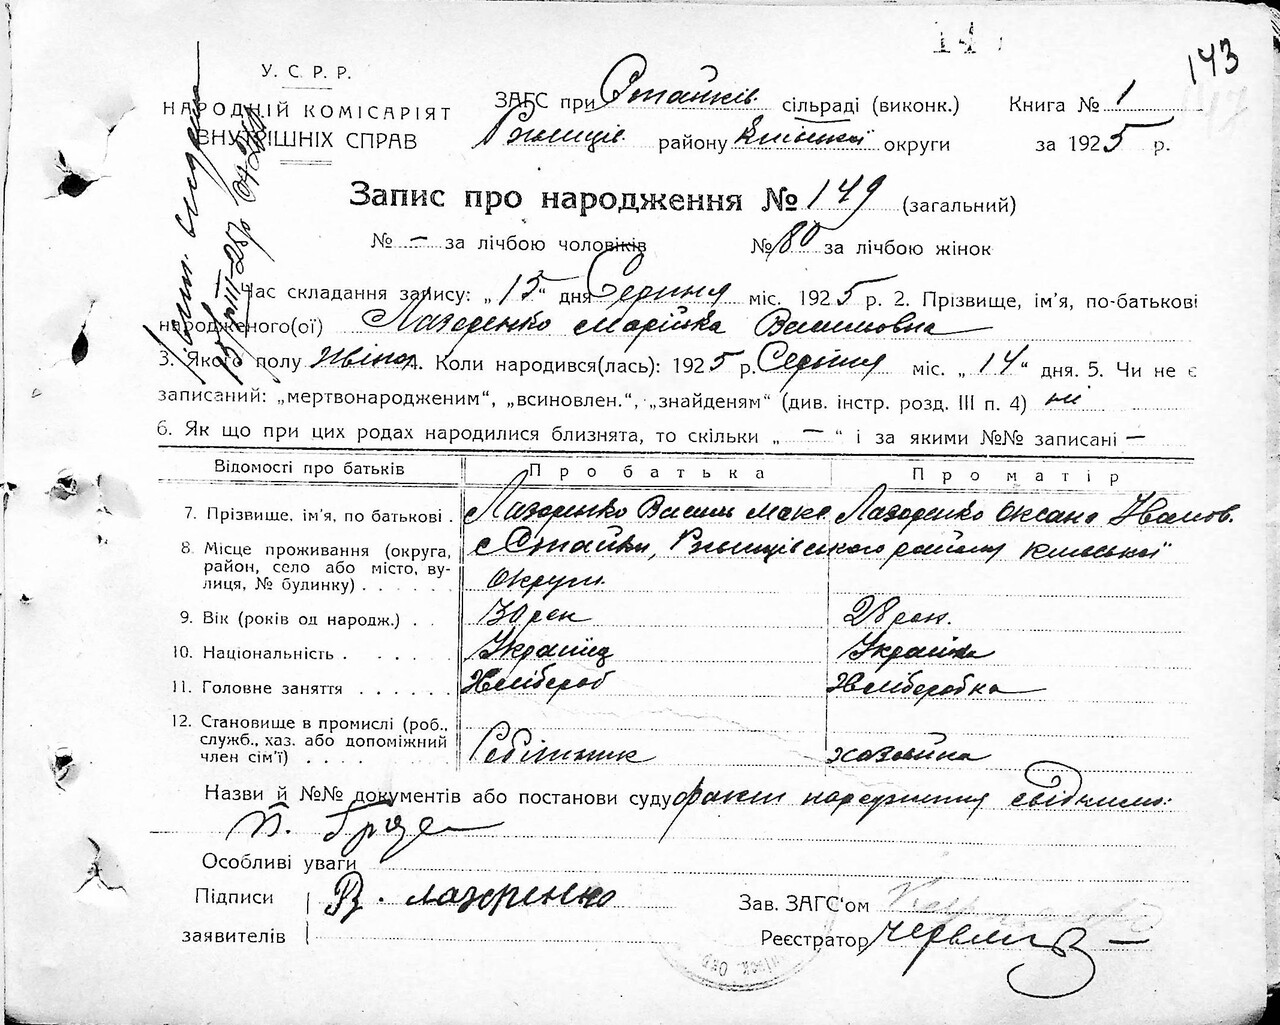 14
143
У. С. Р. Р.
НАРОДНІЙ КОМІСАРІЯТ
ВНУТРІШНІХ СПРАВ
ЗАГС при Стайків. сільраді (виконк.)
Ржищів району Київської округи
Книга № 1
за 1925 р.
Запис про народження № 149 (загальний)
№ – за лічбою чоловіків № 80 за лічбою жінок
Час складання запису: „15“ дня Серпня міс. 1925 р. 2. Прізвище, ім'я, по-батькові
народженого(ої) Лазоренко Марійка Василівна
3. Якого полу жіноч. 4. Коли народився(лась): 1925 р. Серпня міс. „14“ дня. 5. Чи не є
записаний: „мертвонародженим“, „всиновлен.“, „знайденям“ (див. інстр. розд. III п. 4) ні
6. Як що при цих родах народилися близнята, то скільки „ — “ і за якими №№ записані —
Відомості про батьків Про батька Про матір
7. Прізвище, ім'я, по батькові . Лазоренко Василь Макс. Лазоренко Оксана Іванов.
8. Місце проживання (округа, район, село або місто, вулиця, № будинку) . . . . . с. Стайки, Ржищівського району Київської
округи.
9. Вік (років од народж.) . . 30 рок 28 рок.
10. Національність . . . . . Українц Українка
11. Головне заняття . . . . . . Хлібороб Хліборобка
12. Становище в промислі (роб., служб., хаз. або допоміжний член сім'ї) . . . . . . Собільник хазяйка
Назви й №№ документів або постанови суду факт народження свідчили:
Особливі уваги
Підписи
заявителів
В. Лазоренко
Зав. ЗАГС'ом
Реєстратор